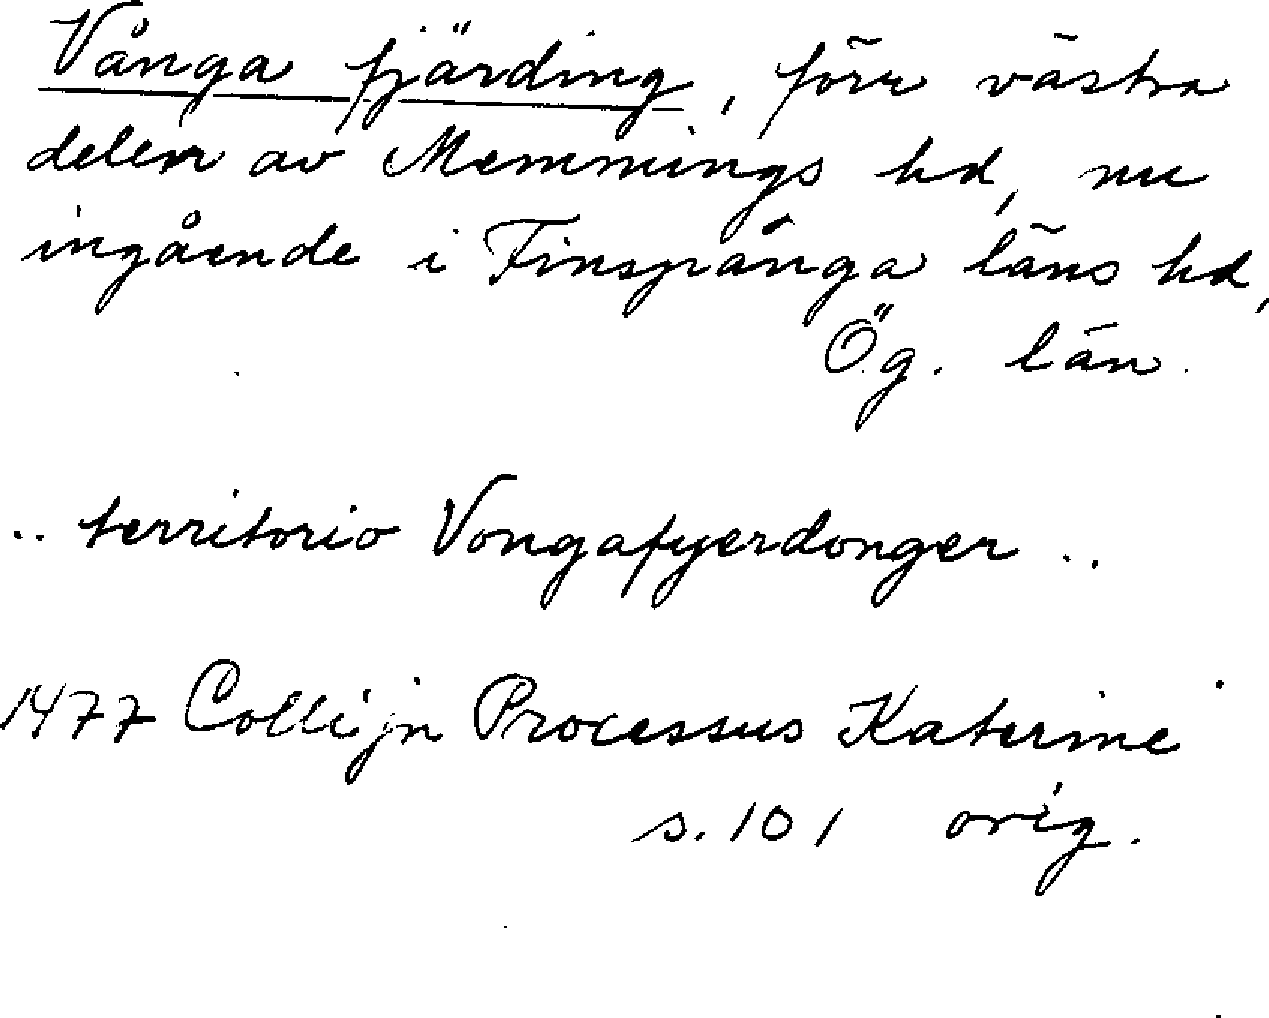 Vånga fjärding, förr västra
delen av Memmings hd, nu
ingående i Finspånga läns hd,
Ög. län.
.. territorio Vongafyerdonger ..
1477 Collijn Processus Katerine
s. 101 orig.